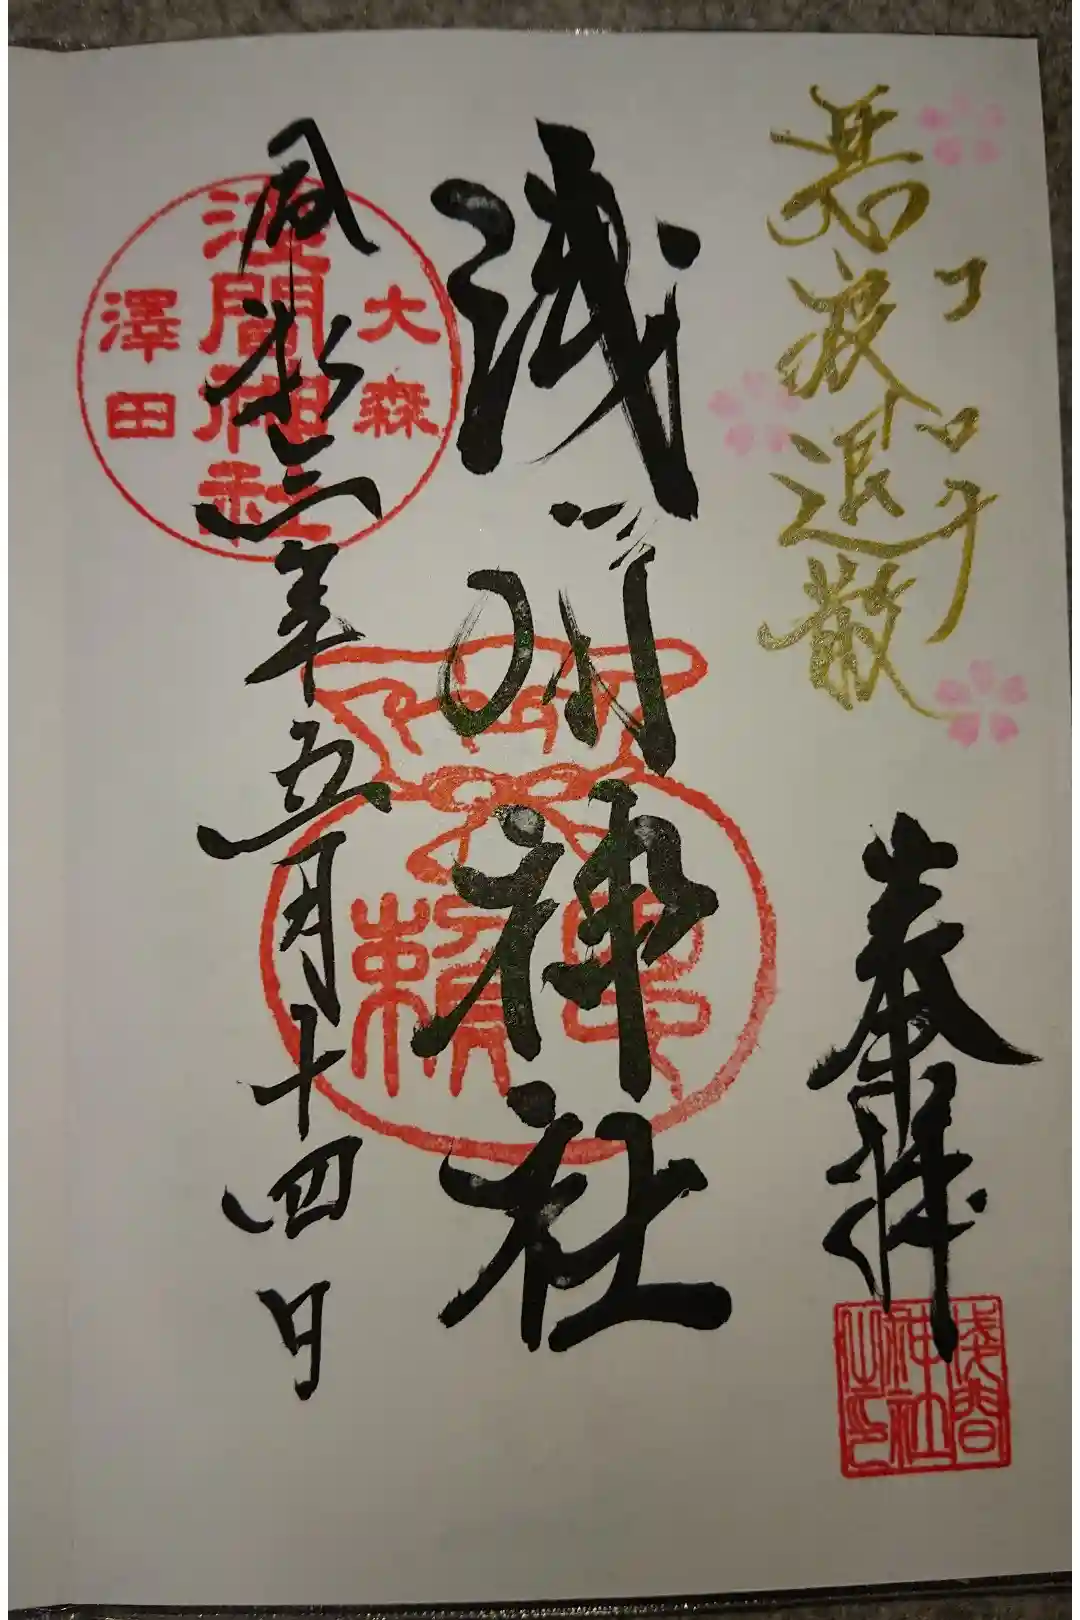 コロナ
悪疫退散
奉拝
淺間
神社
之印
浅間神社
三年五月十四日
大森
浅間神社
澤田